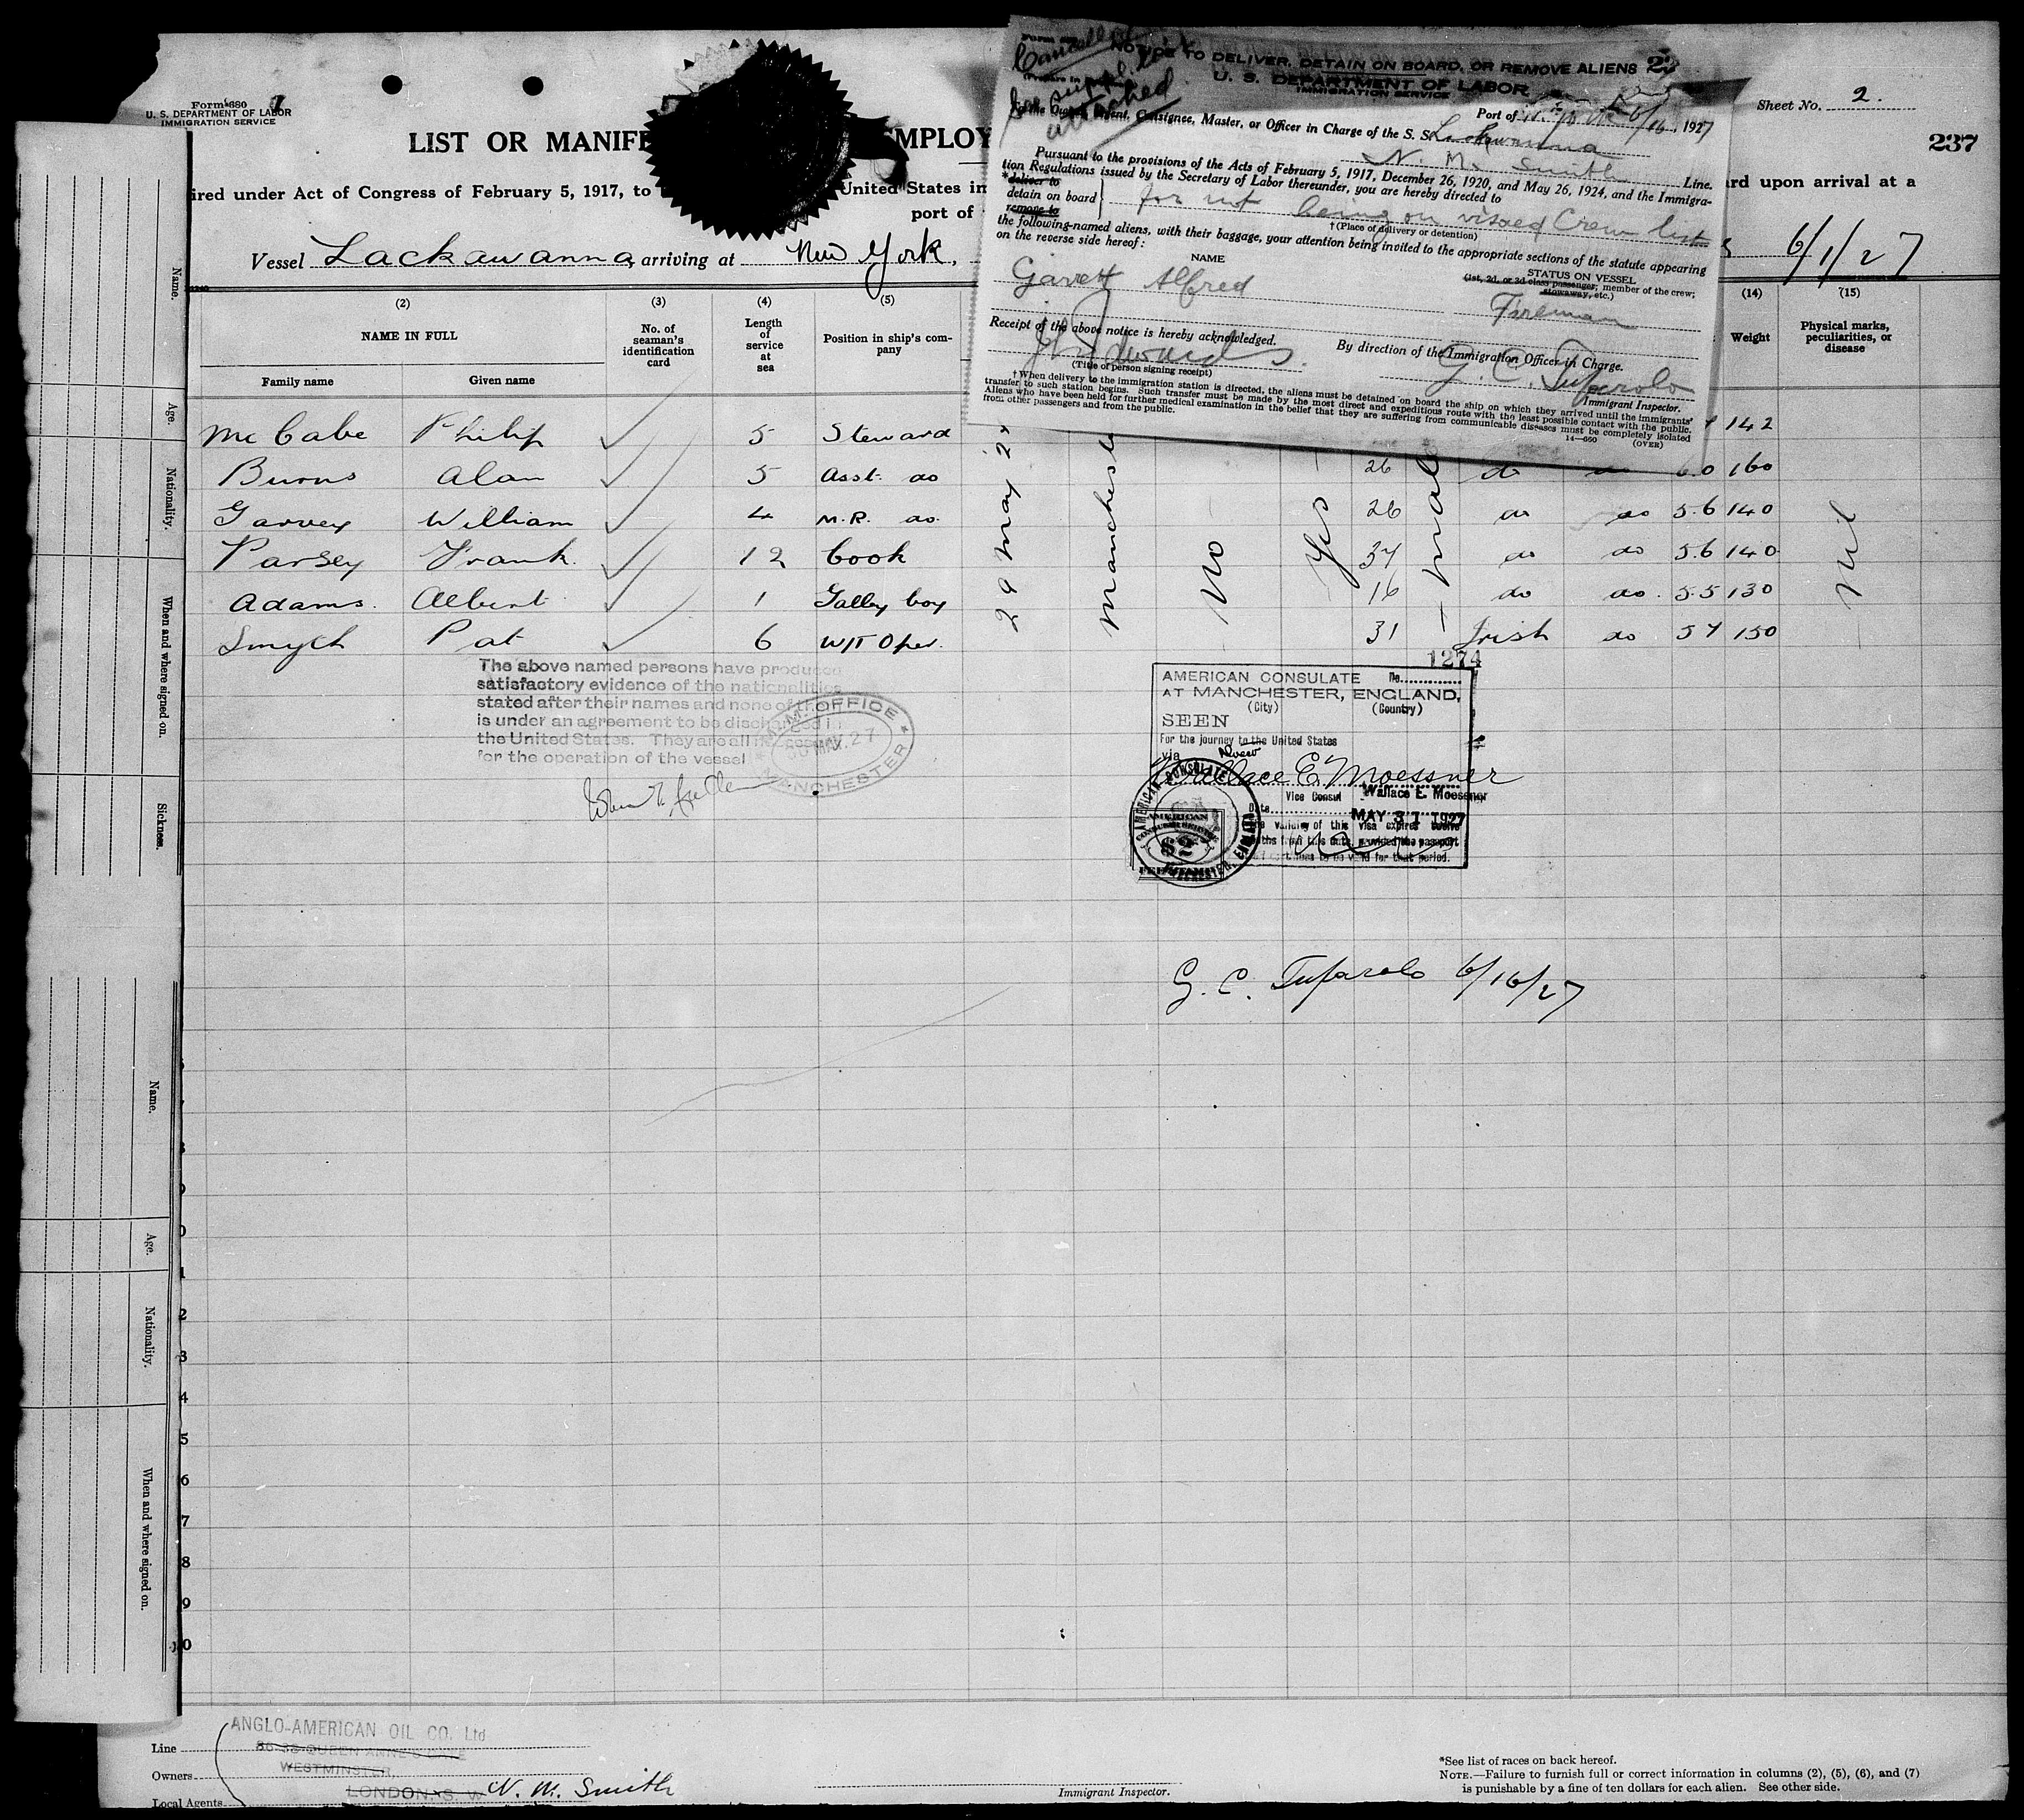 Form 680
U. S. DEPARTMENT OF LABOR
IMMIGRATION SERVICE
Sheet No. 2.
237
LIST OR MANIFE
MPLOY
ired under Act of Congress of February 5, 1917, to
United States in
rd upon arrival at a
port of
Vessel Lackawanna, arriving at New York,
6/1/27
Cancelled
attached
NOTICE TO DELIVER, DETAIN ON BOARD, OR REMOVE ALIENS
U. S. DEPARTMENT OF LABOR
IMMIGRATION SERVICE
Port of 6/16, 1927
To the Owner, Agent, Consignee, Master, or Officer in Charge of the S. S. Lackawanna
N. M. Smith Line.
Pursuant to the provisions of the Acts of February 5, 1917, December 26, 1920, and May 26, 1924, and the Immigra-
tion Regulations issued by the Secretary of Labor thereunder, you are hereby directed to
*deliver to
detain on board
remove to
for not being on visaed Crew list
† (Place of delivery or detention)
the following-named aliens, with their baggage, your attention being invited to the appropriate sections of the statute appearing
on the reverse side hereof:
NAME
STATUS ON VESSEL
(1st, 2d, or 3d class passenger; member of the crew;
stowaway, etc.)
Garett Alfred
Fireman
Receipt of the above notice is hereby acknowledged.
By direction of the Immigration Officer in Charge.
Edwards
(Title of person signing receipt)
G. C. Tufarolo
Immigrant Inspector.
† When delivery to the immigration station is directed, the aliens must be detained on board the ship on which they arrived until the immigrants'
transfer to such station begins. Such transfer must be made by the most direct and expeditious route with the least possible contact with the public.
Aliens who have been held for further medical examination in the belief that they are suffering from communicable diseases must be completely isolated
from other passengers and from the public.
14—660
(OVER)
(2) (3) (4) (5) (14) (15)
NAME IN FULL
Family name Given name
No. of seaman's identification card
Length of service at sea
Position in ship's com-
pany
Weight
Physical marks, peculiarities, or disease
Mc Cabe Philip 5 Steward 142
Burns Alan 5 Asst. do 26 do do 6.0 160
Garvey William 4 M.R. do. 26 do do 5.6 140
Parsey Frank. 12 Cook 37 do do 5.6 140
Adams. Albert 1 Galley boy 16 do do. 5.5 130
Smyth Pat 6 W/T Oper. 31 Irish do 5 7 150
29 May 27
Manchester
No
Yes
Male
Nil
The above named persons have produced
satisfactory evidence of the nationalities
stated after their names and none of them
is under an agreement to be discharged in
the United States. They are all necessary
for the operation of the vessel
M.M. OFFICE
30 MAY. 27
MANCHESTER
1274
AMERICAN CONSULATE No.
AT MANCHESTER, ENGLAND,
(City) (Country)
SEEN
For the journey to the United States
via
Wallace E. Moessner
Vice Consul Wallace E. Moessner
Date MAY 31 1927
The validity of this visa expires twelve
months from this date, provided the passport
continues to be valid for that period.
AMERICAN CONSULATE
AMERICAN
CONSULAR SERVICE
$2
FEE STAMP
G. C. Tufarolo 6/16/27
Name.
Age.
Nationality.
When and where signed on.
Sickness.
Name.
Age.
Nationality.
When and where signed on.
0
1
2
3
4
5
6
7
8
9
0
Line
Owners
Local Agents
ANGLO-AMERICAN OIL CO. Ltd
36-38 QUEEN ANNE'S GATE
WESTMINSTER,
LONDON. S. W
N. M. Smith
Immigrant Inspector.
*See list of races on back hereof.
NOTE.—Failure to furnish full or correct information in columns (2), (5), (6), and (7)
is punishable by a fine of ten dollars for each alien. See other side.